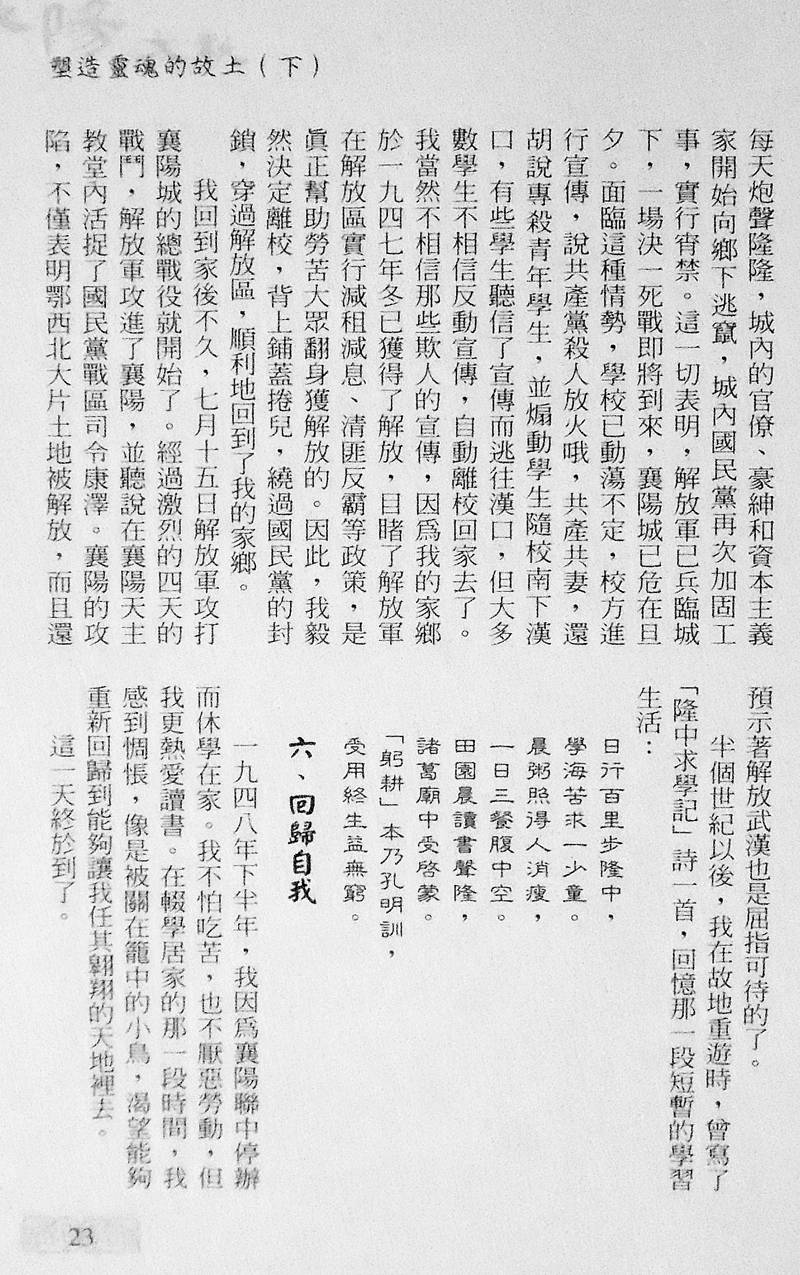 塑造靈魂的故土（下）
每天炮聲隆隆，城內的官僚、豪紳和資本主義
家開始向鄉下逃竄，城內國民黨再次加固工
事，實行宵禁。這一切表明，解放軍已兵臨城
下，一場決一死戰即將到來，襄陽城已危在旦
夕。面臨這種情勢，學校已動蕩不定，校方進
行宣傳，說共產黨殺人放火哦，共產共妻，還
胡說專殺青年學生，並煽動學生隨校南下漢
口，有些學生聽信了宣傳而逃往漢口，但大多
數學生不相信反動宣傳，自動離校回家去了。
我當然不相信那些欺人的宣傳，因爲我的家鄉
於一九四七年冬已獲得了解放，目睹了解放軍
在解放區實行減租減息、清匪反霸等政策，是
眞正幫助勞苦大眾翻身獲解放的。因此，我毅
然決定離校，背上鋪蓋捲兒，繞過國民黨的封
鎖，穿過解放區，順利地回到了我的家鄉。
我回到家後不久，七月十五日解放軍攻打
襄陽城的總戰役就開始了。經過激烈的四天的
戰鬥，解放軍攻進了襄陽，並聽說在襄陽天主
教堂內活捉了國民黨戰區司令康澤。襄陽的攻
陷，不僅表明鄂西北大片土地被解放，而且還
預示著解放武漢也是屈指可待的了。
半個世紀以後，我在故地重遊時，曾寫了
「隆中求學記」詩一首，回憶那一段短暫的學習
生活：
日行百里步隆中，
學海苦求一少童。
晨粥照得人消瘦，
一日三餐腹中空。
田園晨讀書聲隆，
諸葛廟中受啓蒙。
「躬耕」本乃孔明訓，
受用終生益無窮。
六、回歸自我
一九四八年下半年，我因爲襄陽聯中停辦
而休學在家。我不怕吃苦，也不厭惡勞動，但
我更熱愛讀書。在輟學居家的那一段時間，我
感到惆悵，像是被關在籠中的小鳥，渴望能夠
重新回歸到能夠讓我任其翱翔的天地裡去。
這一天終於到了。
23